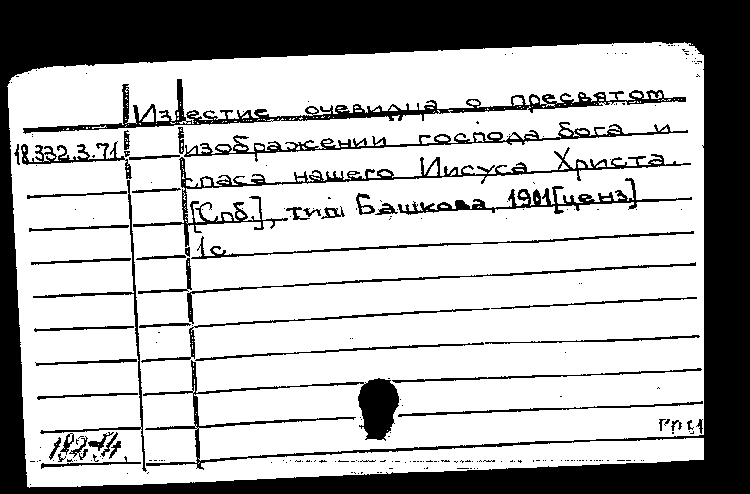 Известие очевидца о пресвятом
18.332.3.71. изображении господа бога и
спаса нашего Иисуса Христа.
[Спб.], тип. Башкова, 1901[ценз.]
1с.
182-54.